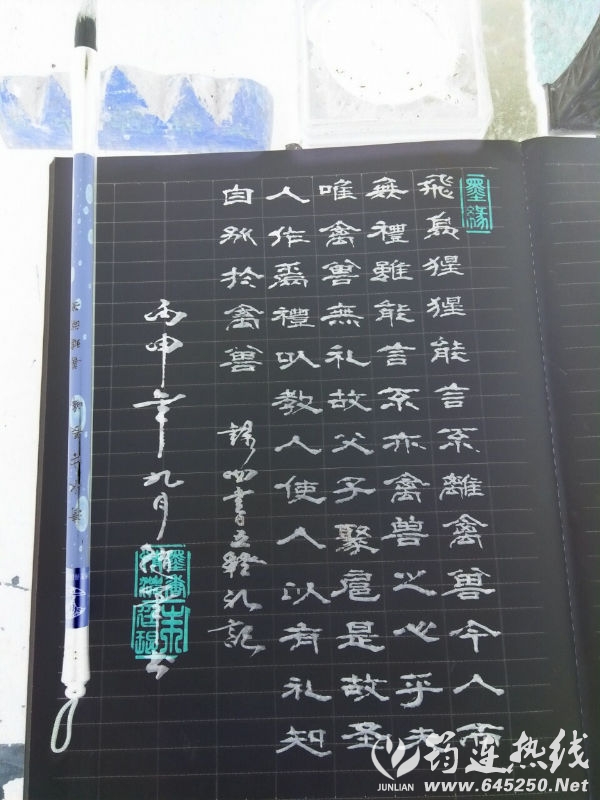 墨緣
飛鳥猩猩能言不離禽獸今人而
無禮雖能言不亦禽獸之心乎夫
唯禽獸無礼故父子聚麀是故圣
人作爲禮以教人使人以有礼知
自别於禽獸 錄四書五經礼記
丙申年九月
筠连热线
JUNLIAN www.645250.Net